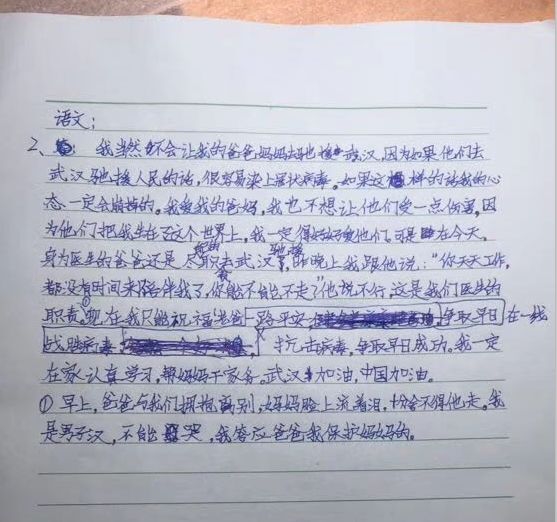 语文:
2、我当然不会让我的爸爸妈妈去驰援武汉,因为如果他们去
武汉驰援人民的话,很容易染上冠状病毒。如果这样的话我的心
态一定会崩掉的。我爱我的爸妈,我也不想让他们受一点伤害,因
为他们把我生在了这个世界上,我一定得好好爱他们。可是在今天,
身为医生的爸爸还是尽职去武汉驰援了,昨晚上我跟他说:“你天天工作,
都没有时间来陪伴我了,你能不能不走?”他说不行,这是我们医生的
职责。①现在我只能祝福爸爸一路平安,争取早日在一线
战胜病毒,抗击病毒,争取早日成功。我一定
在家认真学习,帮妈妈干家务。武汉加油,中国加油。
①早上,爸爸与我们拥抱离别,妈妈脸上流着泪,舍不得他走。我
是男子汉,不能哭,我答应爸爸我保护妈妈的。